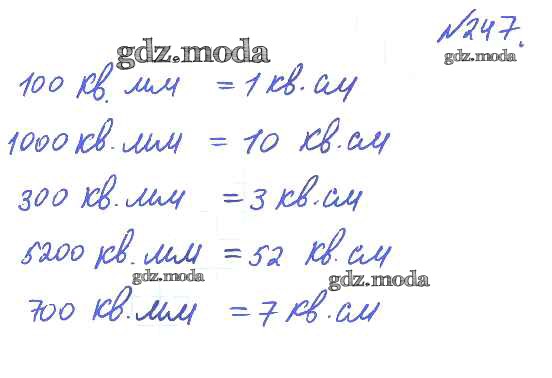 №247.
gdz.moda
gdz.moda
100 кв. мм = 1 кв. см
1000 кв. мм = 10 кв. см
300 кв. мм = 3 кв. см
5200 кв. мм = 52 кв. см
gdz.moda
gdz.moda
700 кв. мм = 7 кв. см